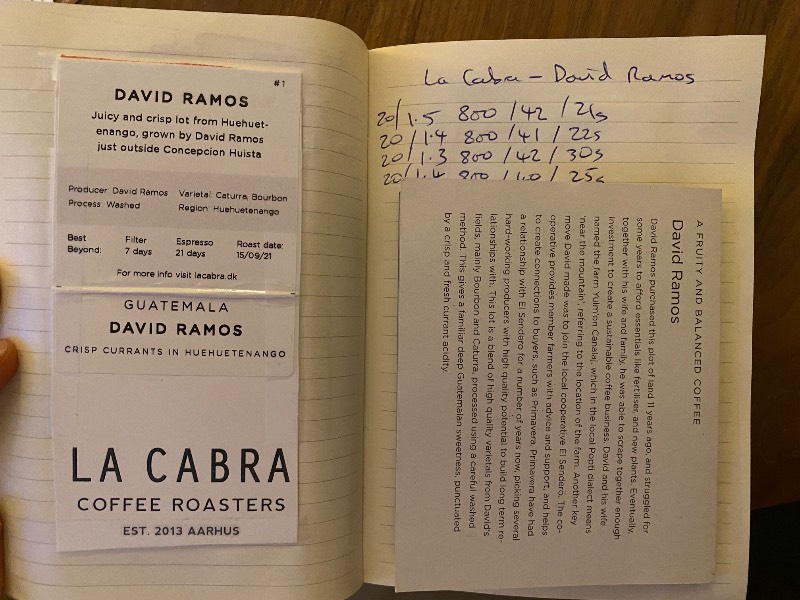 #1
DAVID RAMOS
Juicy and crisp lot from Huehuet-
enango, grown by David Ramos
just outside Concepcion Huista
Producer: David Ramos Varietal: Caturra, Bourbon
Process: Washed Region: Huehuetenango
Best Filter Espresso Roast date:
Beyond: 7 days 21 days 15/09/21
For more info visit lacabra.dk
GUATEMALA
DAVID RAMOS
CRISP CURRANTS IN HUEHUETENANGO
LA CABRA
COFFEE ROASTERS
EST. 2013 AARHUS
La Cabra – David Ramos
20/1.5 800/42/21s
20/1.4 800/41/22s
20/1.3 800/42/30s
20/1.4 800/ /25s
A FRUITY AND BALANCED COFFEE
David Ramos
David Ramos purchased this plot of land 11 years ago, and struggled for
some years to afford essentials like fertiliser, and new plants. Eventually,
together with his wife and family, he was able to scrape together enough
investment to create a sustainable coffee business. David and his wife
named the farm Yulm'on Canalaj, which in the local Popti dialect means
'near the mountain', referring to the location of the farm. Another key
move David made was to join the local cooperative El Sendero. The co-
operative provides member farmers with advice and support, and helps
to create connections to buyers, such as Primavera. Primavera have had
a relationship with El Sendero for a number of years now, picking several
hard-working producers with high quality potential to build long term re-
lationships with. This lot is a blend of high quality varietals from David's
fields, mainly Bourbon and Caturra, processed using a careful washed
method. This gives a familiar deep Guatemalan sweetness, punctuated
by a crisp and fresh currant acidity.